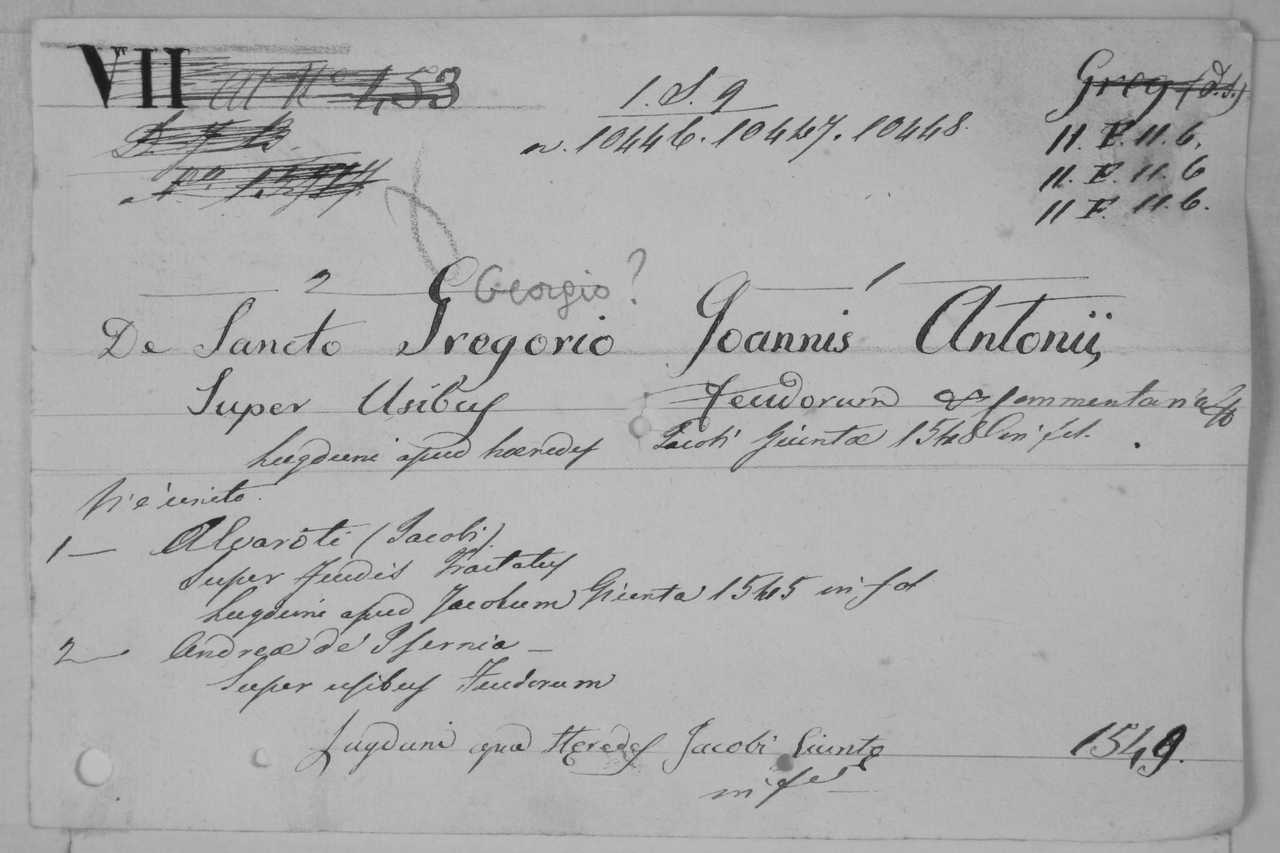 VII
1. S. 9
n. 10446. 10447. 10448.
Greg (d. S.)
11. F. 11. 6.
11. F. 11. 6
11 F. 11. 6.
2 Georgio? 1
De Sancto Gregorio Joannis Antonii,
Super Usibus Feudorum & Commentaria
Lugduni apud hæredes Jacobi Giuntæ 1548 in fol.
Vi è unito.
1 — Alvaroti (Jacobi)
Super feudis Tractatus
Lugduni apud Jacobum Giunta 1545 in fol
2 — Andreæ de Isernia —
Super usibus Feudorum
Lugduni apud Heredes Jacobi Giunte 1549.
in fol